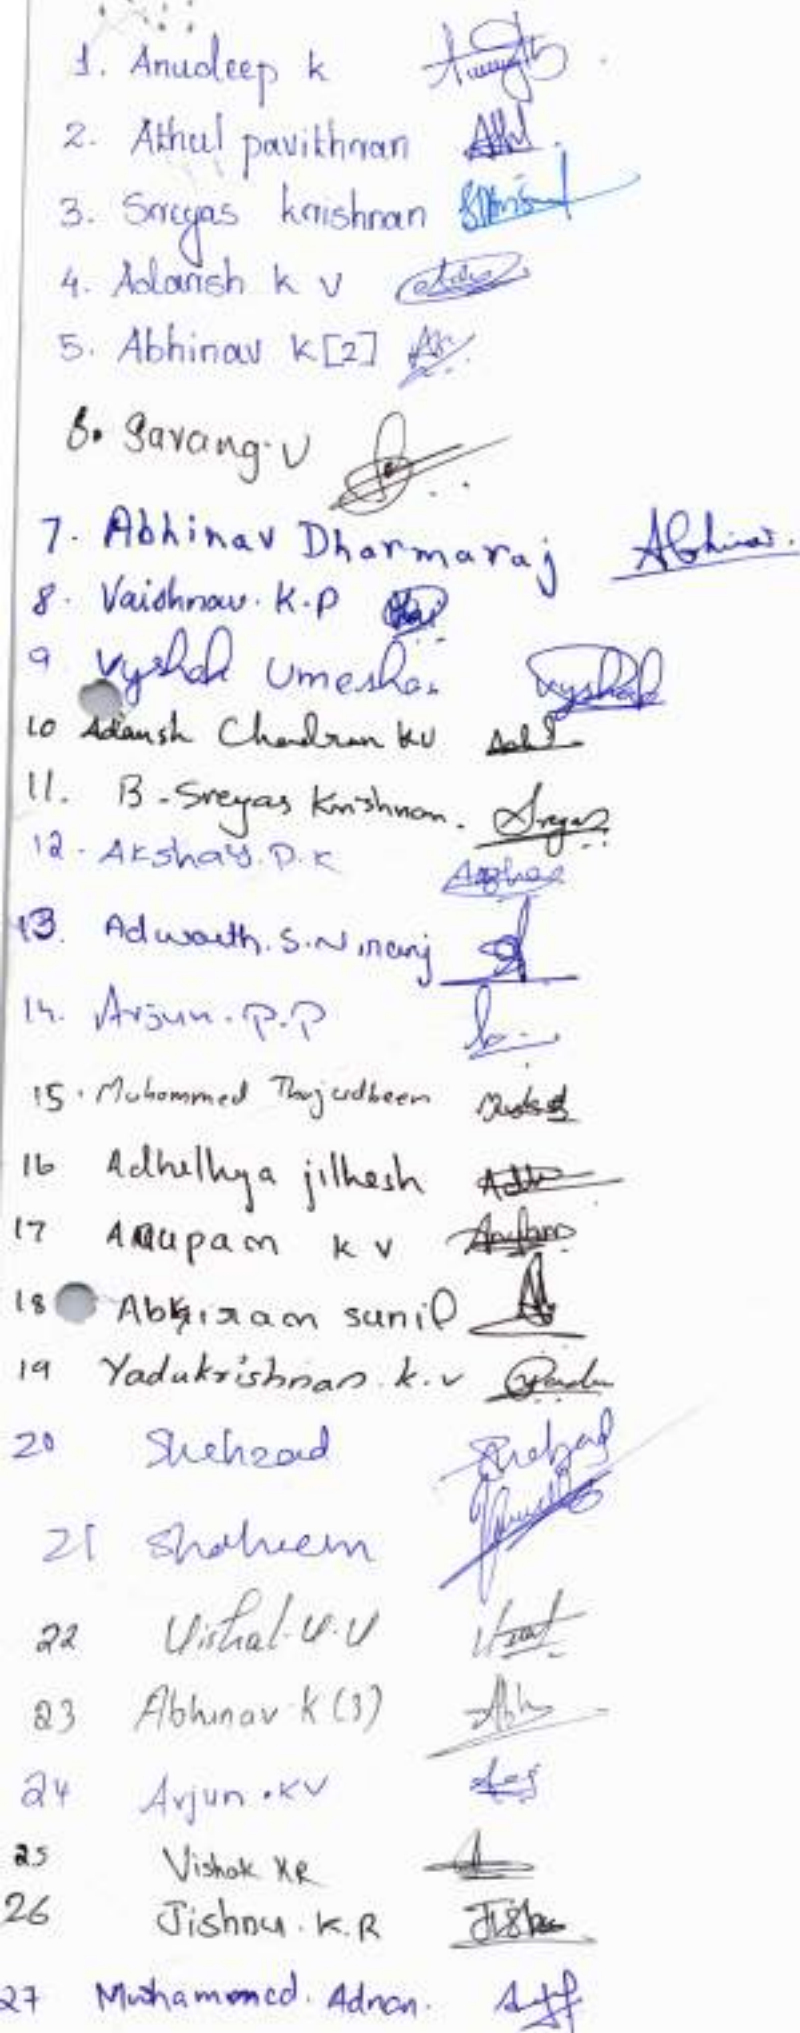 1. Anudeep k
2. Athul pavithran
3. Sreyas krishnan
4. Adarsh k v
5. Abhinav k[2]
6. Sarang.v
7. Abhinav Dharmaraj Abhinav.
8. Vaishnav. K.P
9 Vyshak Umeshan Vyshak
10 Adarsh Chandran KV
11. B. Sreyas Krishnan. Sreyas
12. Akshay. P. K
13. Adwaith. S. Niranj
14. Arjun. P.P
15. Muhammed Thajudheen
16 Adhethya jithesh
17 Anupam k v Anupam
18 Abhiram sunil
19 Yadukrishnan. k.v
20 Shehzad Shehzad
21 Shaheem
22 Vishal. V. V
23 Abhinav K (3) Abh
24 Arjun. KV
25 Vishak KR
26 Jishnu. K. R
27 Muhammed. Adnan.